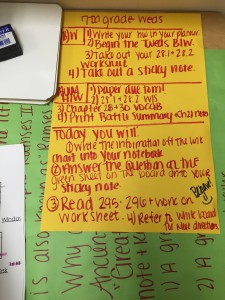 7th grade Weds
BW 1) Write your hw in your planner
2) Begin the Weeks B/W.
3) Take out your 28.1 + 28.2
Worksheet
4) Take out a sticky note.
HW 1) Paper due tom!
2) 28.1 + 28.2 W/S
3) Chapter 28 + 30 Vocab
4) Print Battle Summary + Ch 20 note
Today you will
① Write the information off the
chart into your notebook
② Answer the question on the
green sheet on the board onto your
sticky note.
③ Read 295-296 + work on
worksheet. 4) Refer to white board
for more directions
is also known as "Ramses
Why
Ancient
"Grea
Note +
1) 19
2) 19 g
Window